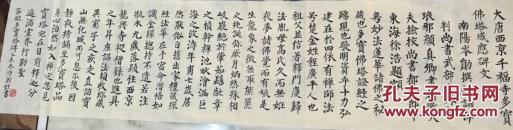 大唐西京千福寺多寶
佛塔感應碑文
南陽岑勛撰朝議郎
判尚書武部員外郎
琅耶顏真卿書朝散大
夫撿校尚書都官郎中
東海徐浩題額
粵妙法蓮華諸佛之秘
藏也多寶佛塔證經之
踊現也發明資乎十力弘
建在於四依有禪師法
號楚金姓程廣平人也
祖父並信著釋門慶歸
法胤母高氏久而無妊
夜夢諸佛覺而有娠是
生龍象之徵無取熊羆
之兆誕彌厥月炳然殊相
岐嶷絕於葷茹髫齔
之楨幹禪池畎澮涵巨
海之波濤年甫七歲居
然厭俗自誓出家禮藏探
經法華在手宿命潛悟如
識金環總持不遺若注
瓶水九歲落髮住西京
龍興寺從僧籙也進具
之年昇座講法頓收珍藏
異窮子之疾走直詣寶
山無化城而可息爾後因
靜夜持誦至多寶塔品
身心泊然如入禪定忽見
寶塔宛在目前釋迦分
身遍滿空界行勤聖